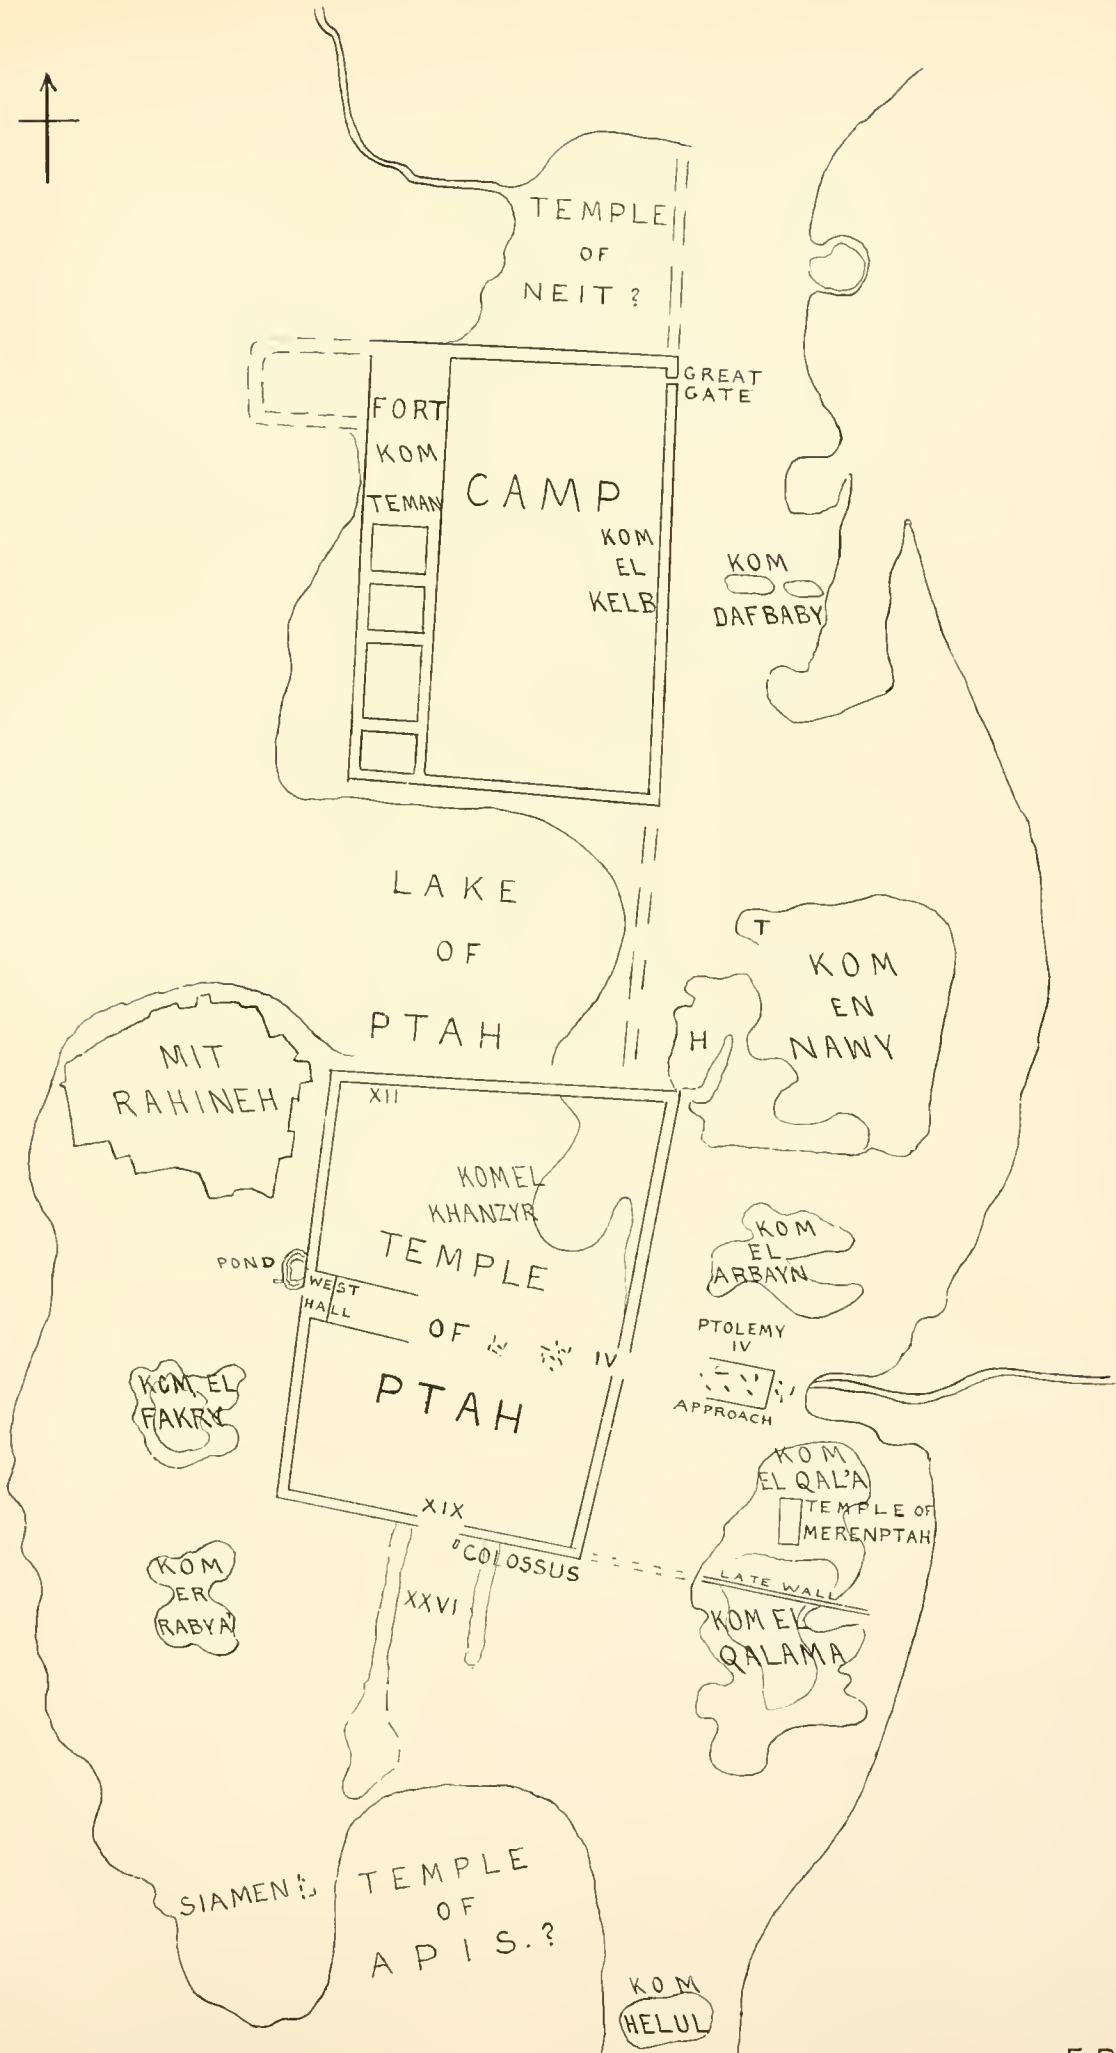 TEMPLE
OF
NEIT ?
GREAT
GATE
FORT
KOM
TEMAN
CAMP
KOM
EL
KELB
KOM
DAFBABY
LAKE
OF
PTAH
T
KOM
EN
NAWY
H
MIT
RAHINEH
XII
KOM EL
KHANZYR
TEMPLE
OF
PTAH
IV
POND
WEST
HALL
KOM
EL
ARBAYN
PTOLEMY
IV
APPROACH
KOM EL
FAKRY
KOM
EL QAL'A
TEMPLE OF
MERENPTAH
XIX
COLOSSUS
LATE WALL
KOM
ER
RABYA'
XXVI
KOM EL
QALAMA
SIAMEN
TEMPLE
OF
APIS.?
KOM
HELUL